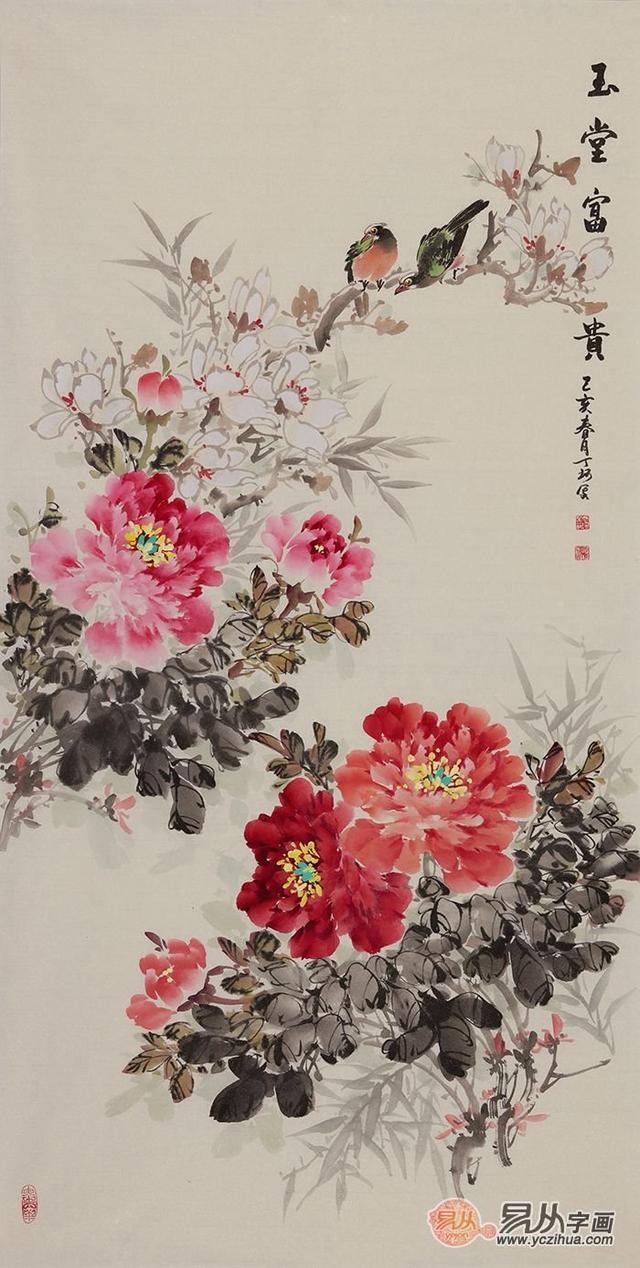 玉堂富貴
己亥春月丁珂寫
易从
易从字画
www.yczihua.com